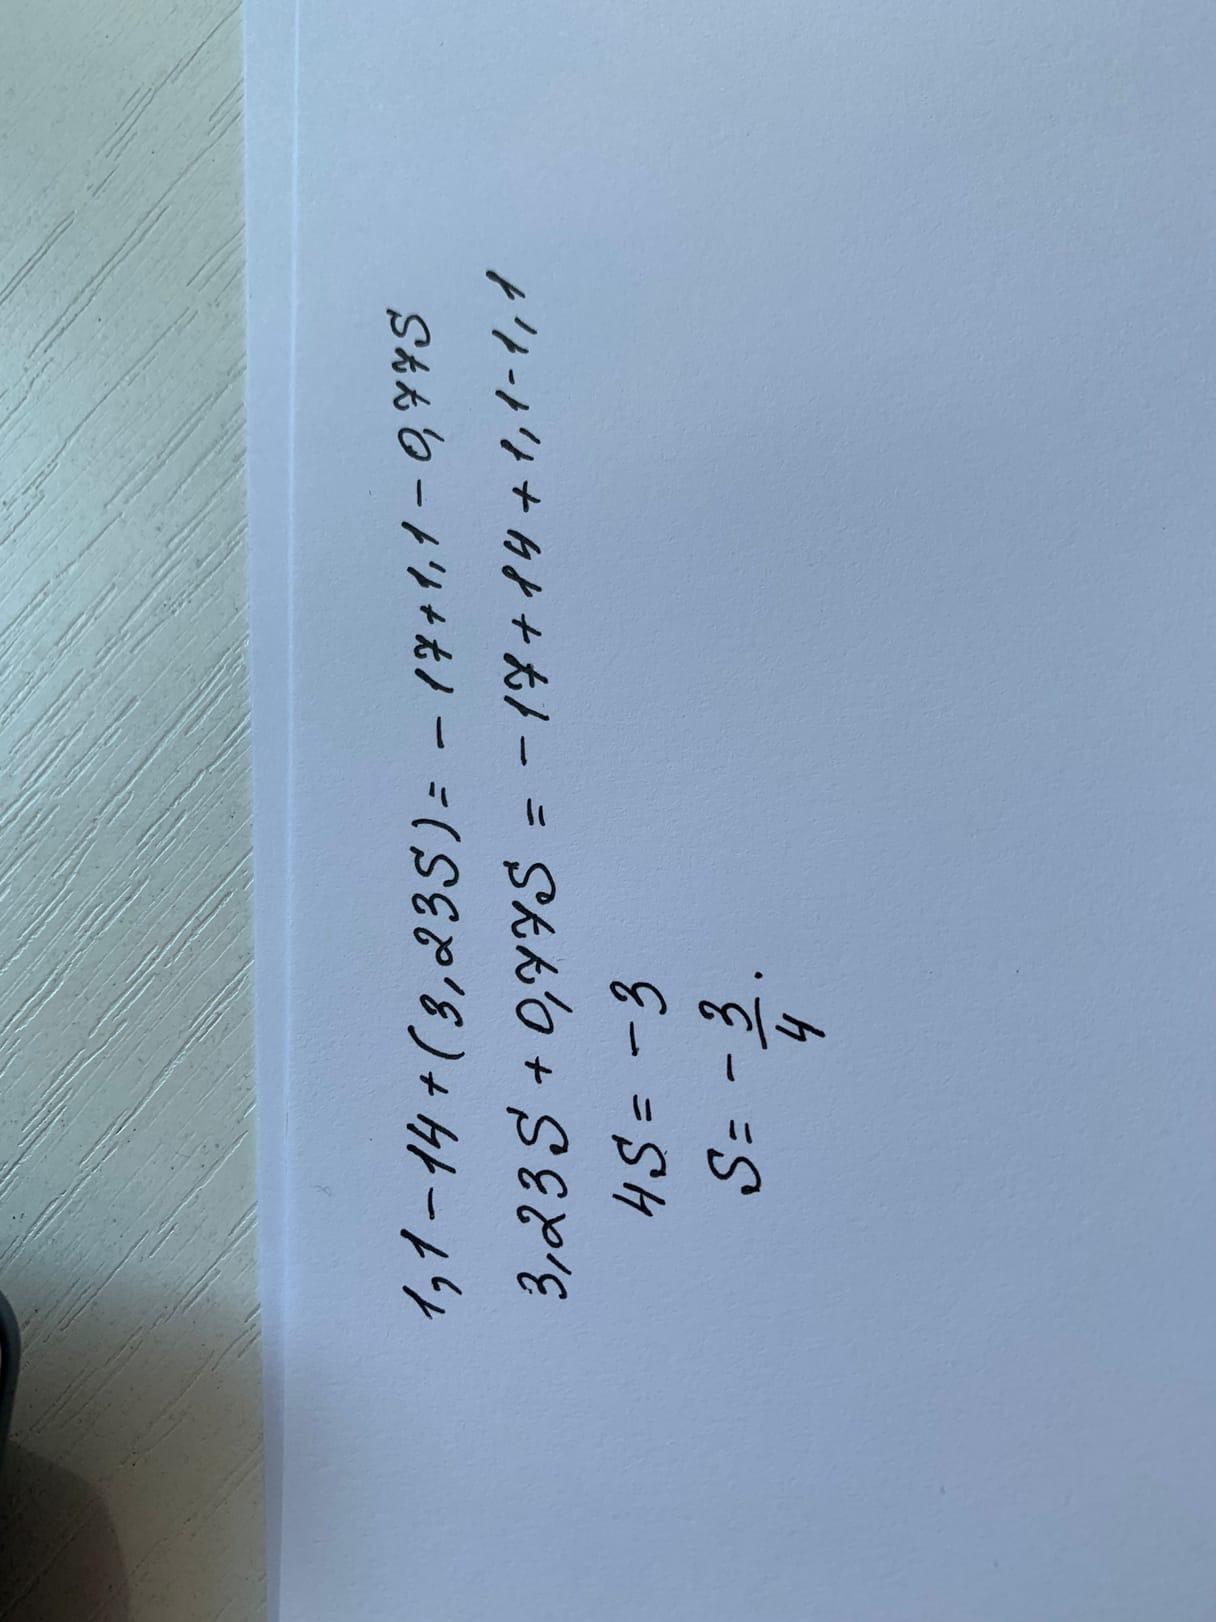 1,1-14+(3,23S)=-17+1,1-0,77S
3,23S+0,77S=-17+14+1,1-1,1
4S=-3
S=-3/4.